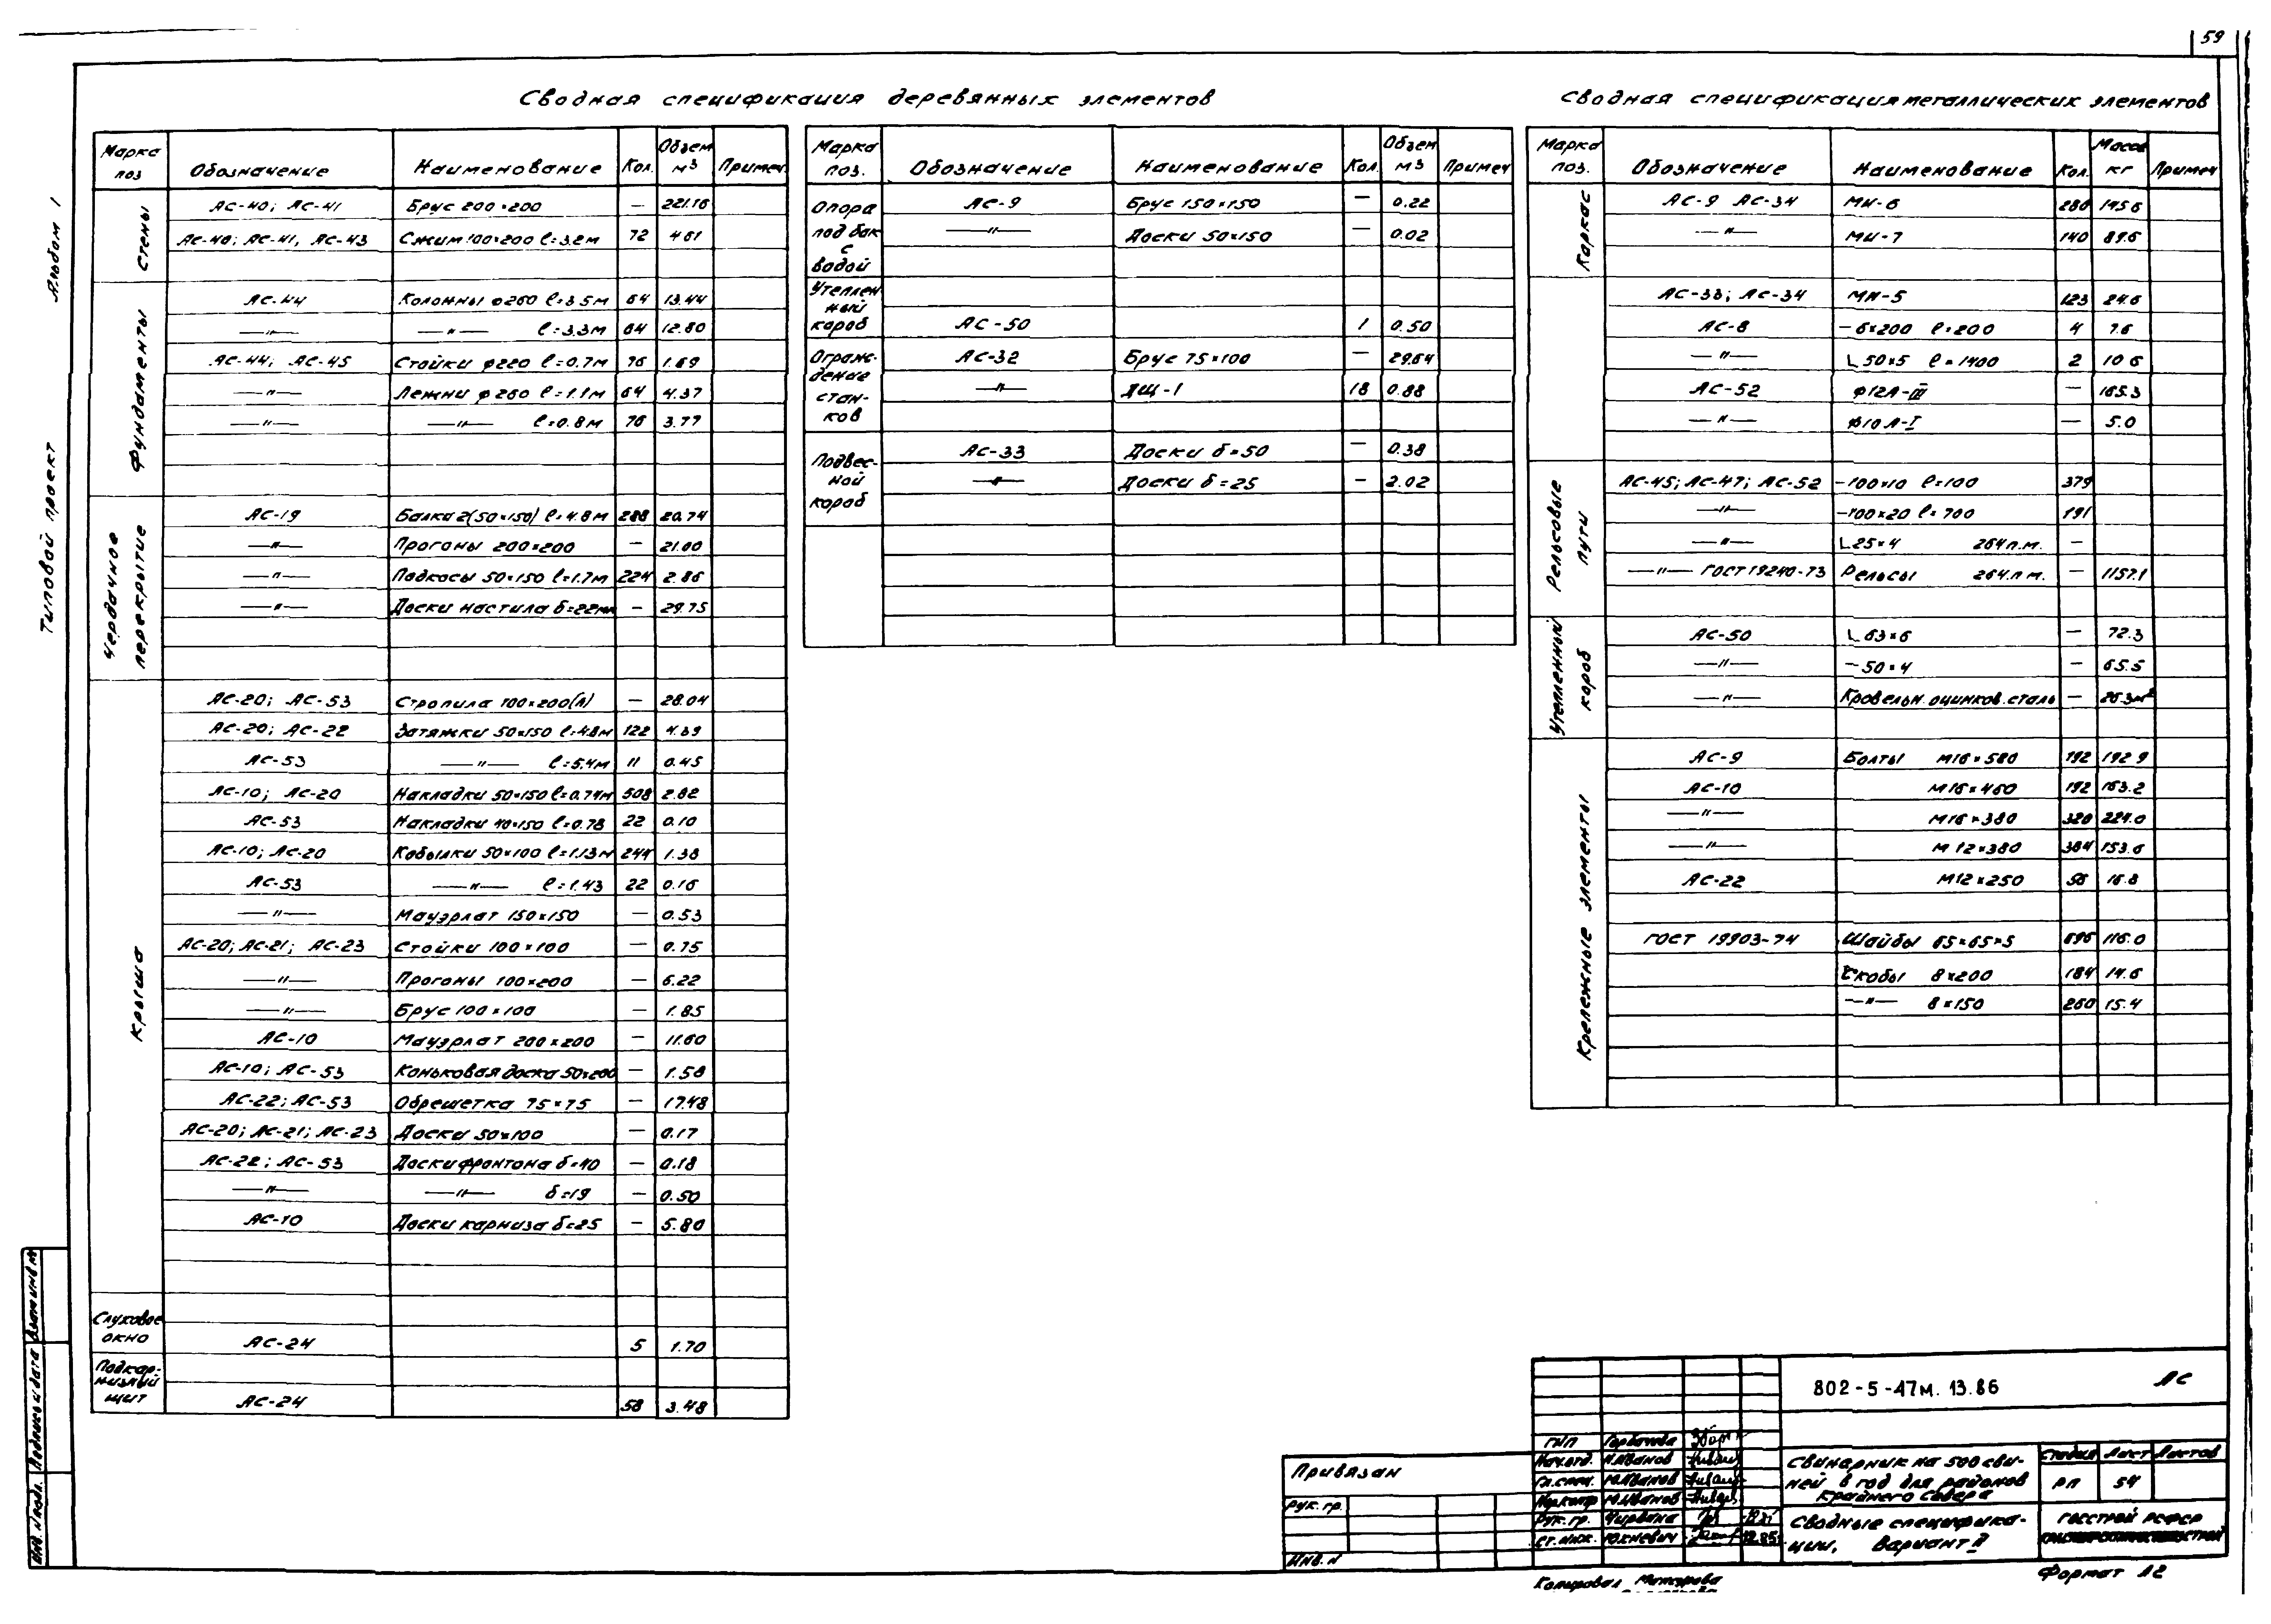 59
Альбом 1
Типовой проект
Сводная спецификация деревянных элементов
Марка поз Обозначение Наименование Кол. Объем м3 Примеч.
Стены
АС-40; АС-41 Брус 200×200 — 221.16
АС-40; АС-41, АС-43 Сжим 100×200 ℓ=3.2м 72 4.61
Фундаменты
АС-44 Колонны φ260 ℓ=3.5м 64 13.44
—"— —"— ℓ=3.3м 64 12.80
АС-44; АС-45 Стойки φ220 ℓ=0.7м 76 1.69
—"— Лежни φ260 ℓ=1.1м 64 4.37
—"— —"— ℓ=0.8м 76 3.77
Чердачное перекрытие
АС-19 Балка 2(50×150) ℓ=4.8м 288 20.74
—"— Прогоны 200×200 — 21.00
—"— Подкосы 50×150 ℓ=1.7м 224 2.86
—"— Доски настила δ=22мм — 29.75
Крыша
АС-20; АС-53 Стропила 100×200(А) — 28.04
АС-20; АС-22 Затяжки 50×150 ℓ=4.8м 122 4.39
АС-53 —"— ℓ=5.4м 11 0.45
АС-10; АС-20 Накладки 50×150 ℓ=0.74м 508 2.82
АС-53 Накладки 40×150 ℓ=0.78 22 0.10
АС-10; АС-20 Кобылки 50×100 ℓ=1.13м 244 1.38
АС-53 —"— ℓ=1.43 22 0.16
—"— Мауэрлат 150×150 — 0.53
АС-20; АС-21; АС-23 Стойки 100×100 — 0.75
—"— Прогоны 100×200 — 6.22
—"— Брус 100×100 — 1.85
АС-10 Мауэрлат 200×200 — 11.60
АС-10; АС-53 Коньковая доска 50×200 — 1.58
АС-22; АС-53 Обрешетка 75×75 — 17.48
АС-20; АС-21; АС-23 Доски 50×100 — 0.17
АС-22; АС-53 Доски фронтона δ=40 — 0.18
—"— —"— δ=19 — 0.50
АС-10 Доски карниза δ=25 — 5.80
Слуховое окно
АС-24 5 1.70
Подкарнизный щит
АС-24 58 3.48
Марка поз. Обозначение Наименование Кол. Объем м3 Примеч
Опора под бак с водой
АС-9 Брус 150×150 — 0.22
—"— Доски 50×150 — 0.02
Утепленный короб
АС-50 1 0.50
Ограждение станков
АС-32 Брус 75×100 — 29.64
—"— ДЩ-1 18 0.88
Подвесной короб
АС-33 Доски δ=50 — 0.38
—"— Доски δ=25 — 2.02
Сводная спецификация металлических элементов
Марка поз. Обозначение Наименование Кол. Масса кг Примеч
Каркас
АС-9 АС-34 МН-6 280 145.6
—"— МН-7 140 89.6
АС-33; АС-34 МН-5 123 24.6
АС-8 −6×200 ℓ=200 4 7.6
—"— L 50×5 ℓ=1400 2 10.6
АС-52 φ12А-III — 165.3
—"— φ10А-I — 5.0
Рельсовые пути
АС-45; АС-47; АС-52 −100×10 ℓ=100 379
—"— −100×20 ℓ=700 191
—"— L25×4 264п.м. —
—"— ГОСТ 19240-73 Рельсы 264.п.м. — 1157.1
Утепленный короб
АС-50 L 63×6 — 72.3
—"— −50×4 — 65.5
—"— Кровельн. оцинков. сталь — 26.3м²
Крепежные элементы
АС-9 Болты М16×580 192 192.9
АС-10 М16×460 192 163.2
—"— М16×380 320 224.0
—"— М12×380 384 153.6
АС-22 М12×250 56 16.8
ГОСТ 19903-74 Шайбы 65×65×5 696 116.0
Скобы 8×200 184 14.6
—"— 8×150 260 15.4
802-5-47м.13.86 АС
ГИП Горбачова
Нач.отд. Иванов
Гл.спец. Ю.Иванов
Нормконтр Ю.Иванов
Рук. гр. Чирвина
Ст. инж. Юхневич 12.85
Свинарник на 500 свиней в год для районов Крайнего Севера
Стадия Лист Листов
РП 54
Сводные спецификации. Вариант II
Госстрой РСФСР
Привязан
Рук. гр.
Инв. N
Взам инв N
Подпись и дата
Инв. N подл.
Копировал
Формат А2